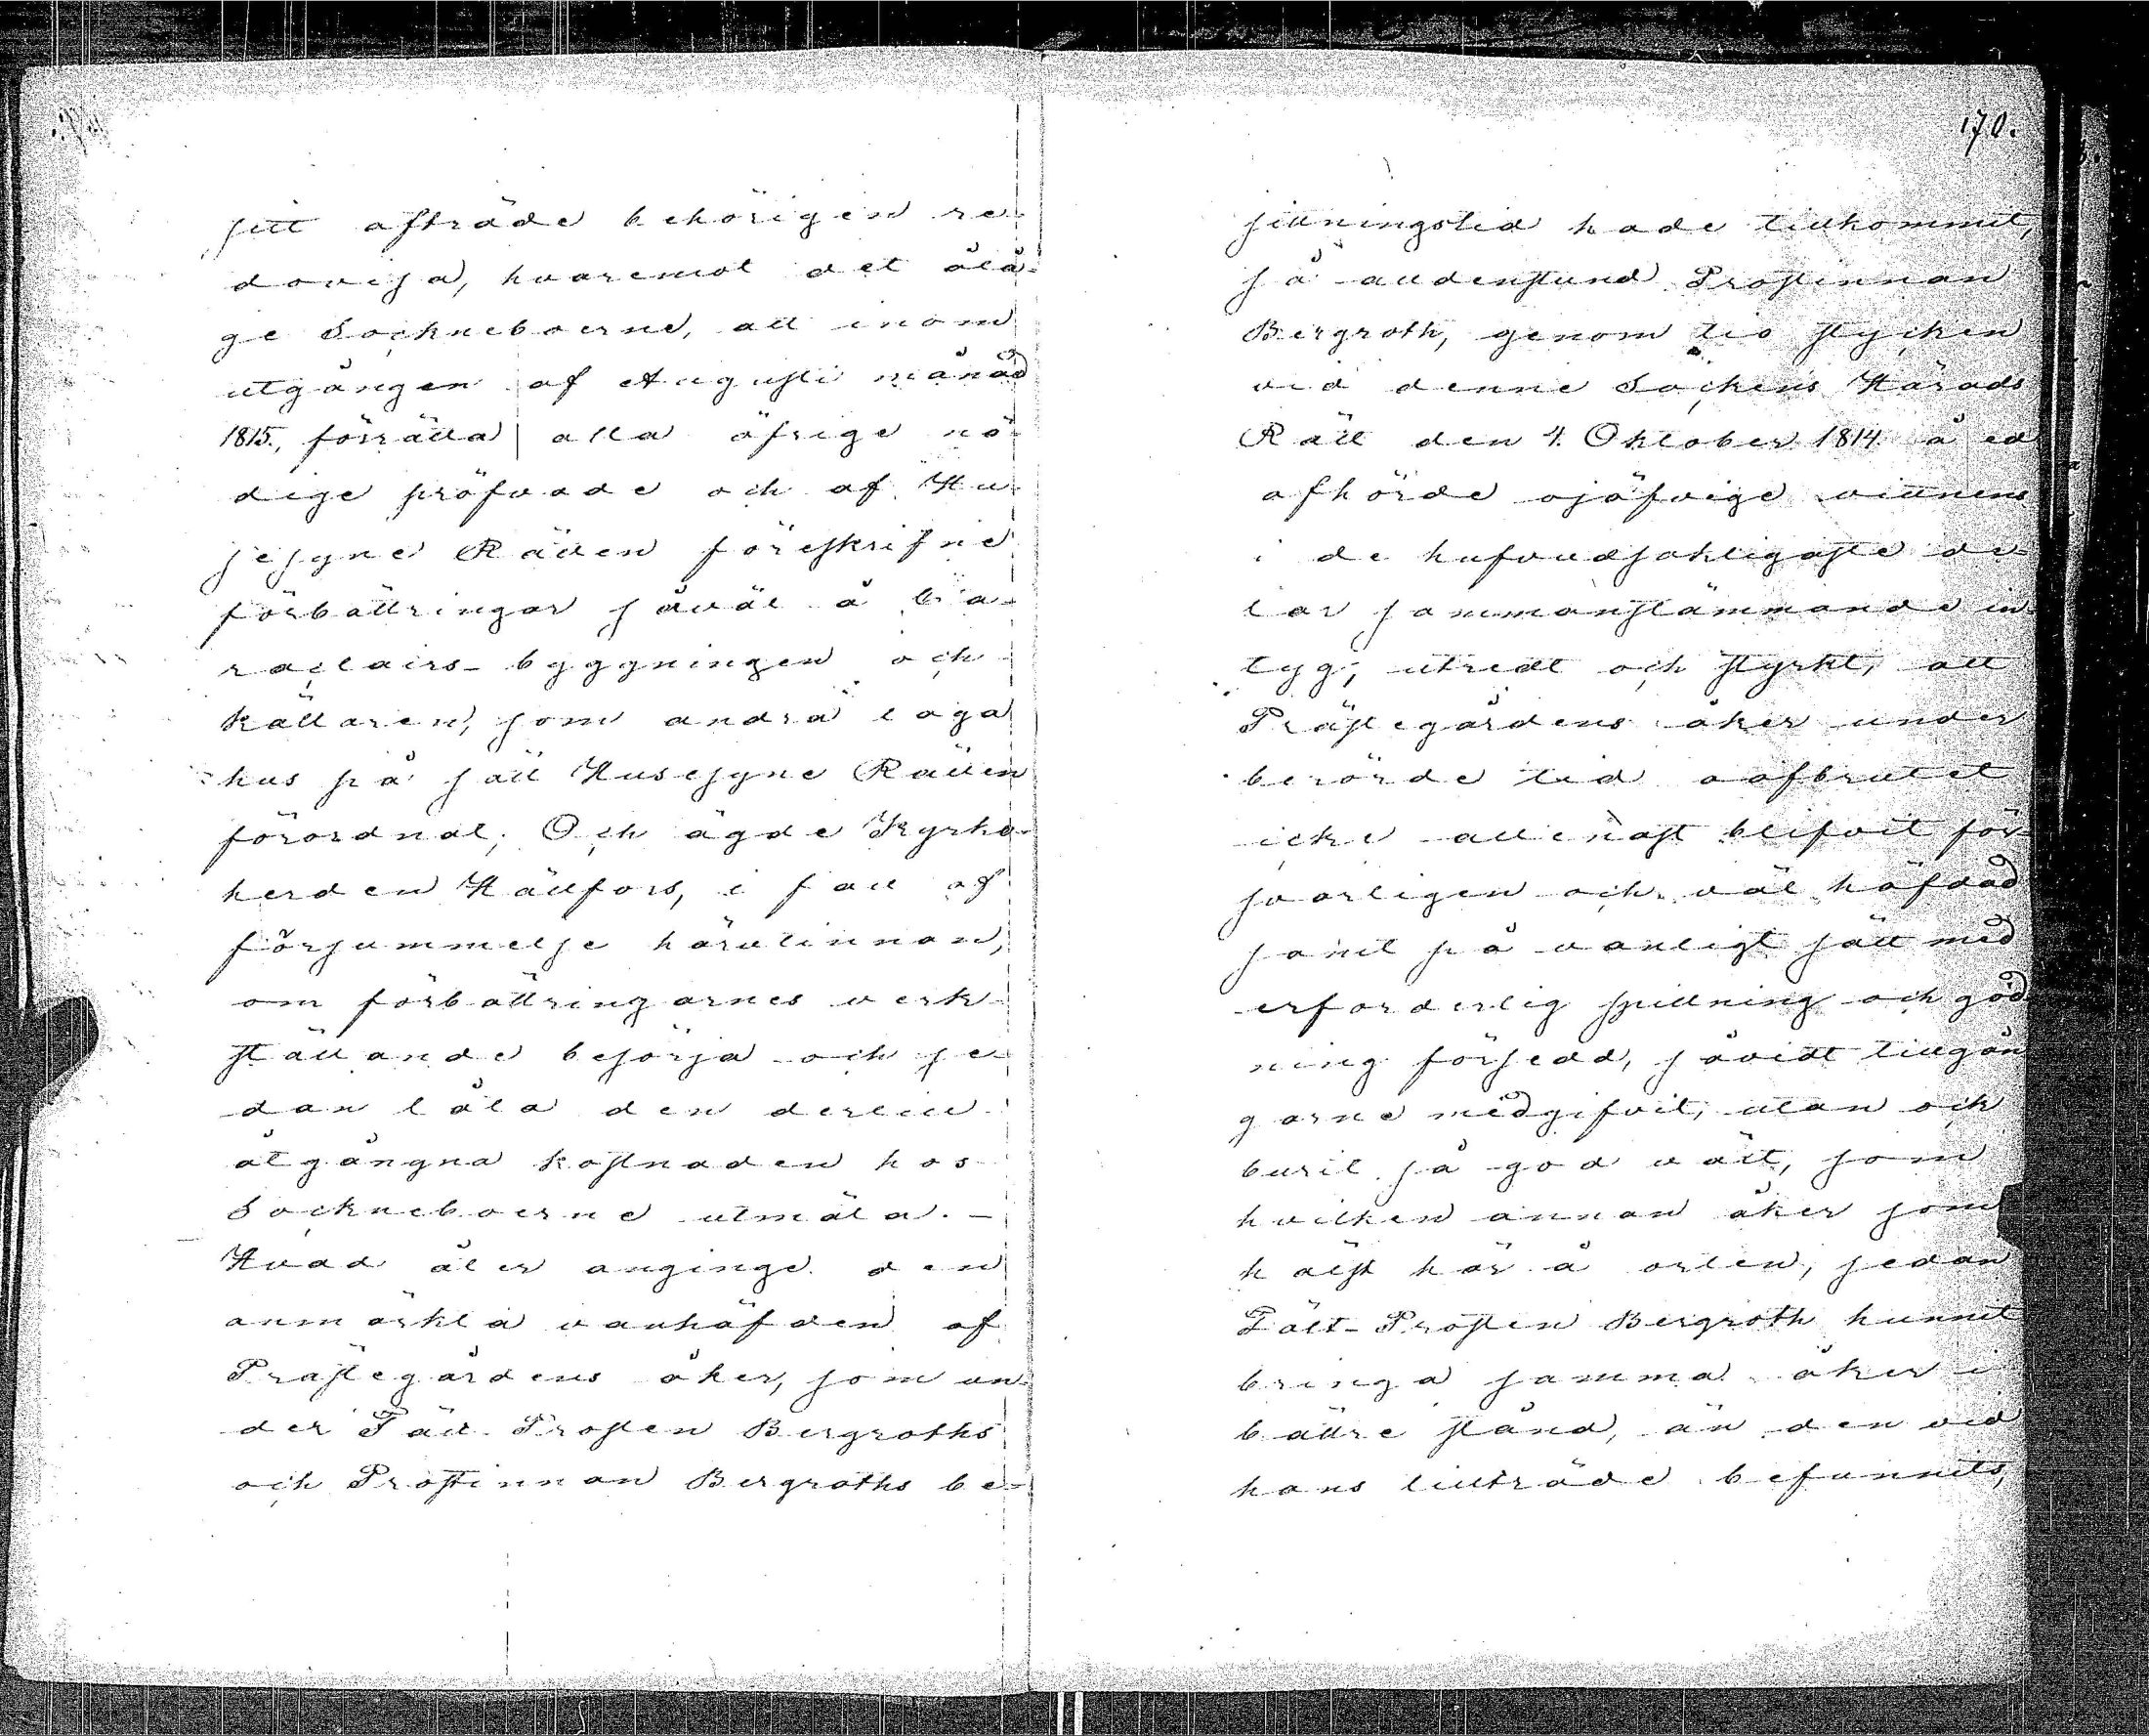 sitt afträde behörigen re-
dovisa, hvaremot det ålå-
ge Sockneboerne, att inom
utgången af Augusti månad
1815, förrätta alla öfrige nö-
dige pröfvade och af Hu-
sesyne Rätten föreskrifne
förbättringar såväl å ba-
racairs-byggningen och
källaren, som andra laga
hus på sätt Husesyne Rätten
förordnat; Och ägde Kyrko-
herden Hällfors, i fall af
försummelse härutinnan,
om förbättringarnes verk-
ställande besörja och se-
dan låta den dertill
åtgångna kostnaden hos
Sockneboerne utmäta. –
Hvad åter anginge den
anmärkta vanhäfden af
Prästegårdens åker, som un-
der Fält-Prosten Bergroths
och Prostinnan Bergroths be-
170.
sittningstid hade tillkommit,
så alldenstund Prostinnan
Bergroth, genom tio stycken
vid denne Sockens Härads
Rätt den 4. Oktober 1814 å ed
afhörde ojäfvige vittnens
i de hufvudsakligaste de-
lar sammanstämmande in-
tyg, utredt och styrkt, att
Prästegårdens åker under
berörde tid oafbrutet
icke allenast blifvit för-
svarligen och väl häfdad
samt på vanligt sätt med
erforderlig spillning och göd-
ning försedd, såvidt tillgån-
garne medgifvit, utan ock
burit så god växt, som
hvilken annan åker som
hälst här å orten, sedan
Fält-Prosten Bergroth hunnit
bringa samma åker i
bättre stånd, än den vid
hans tillträde befunnits,